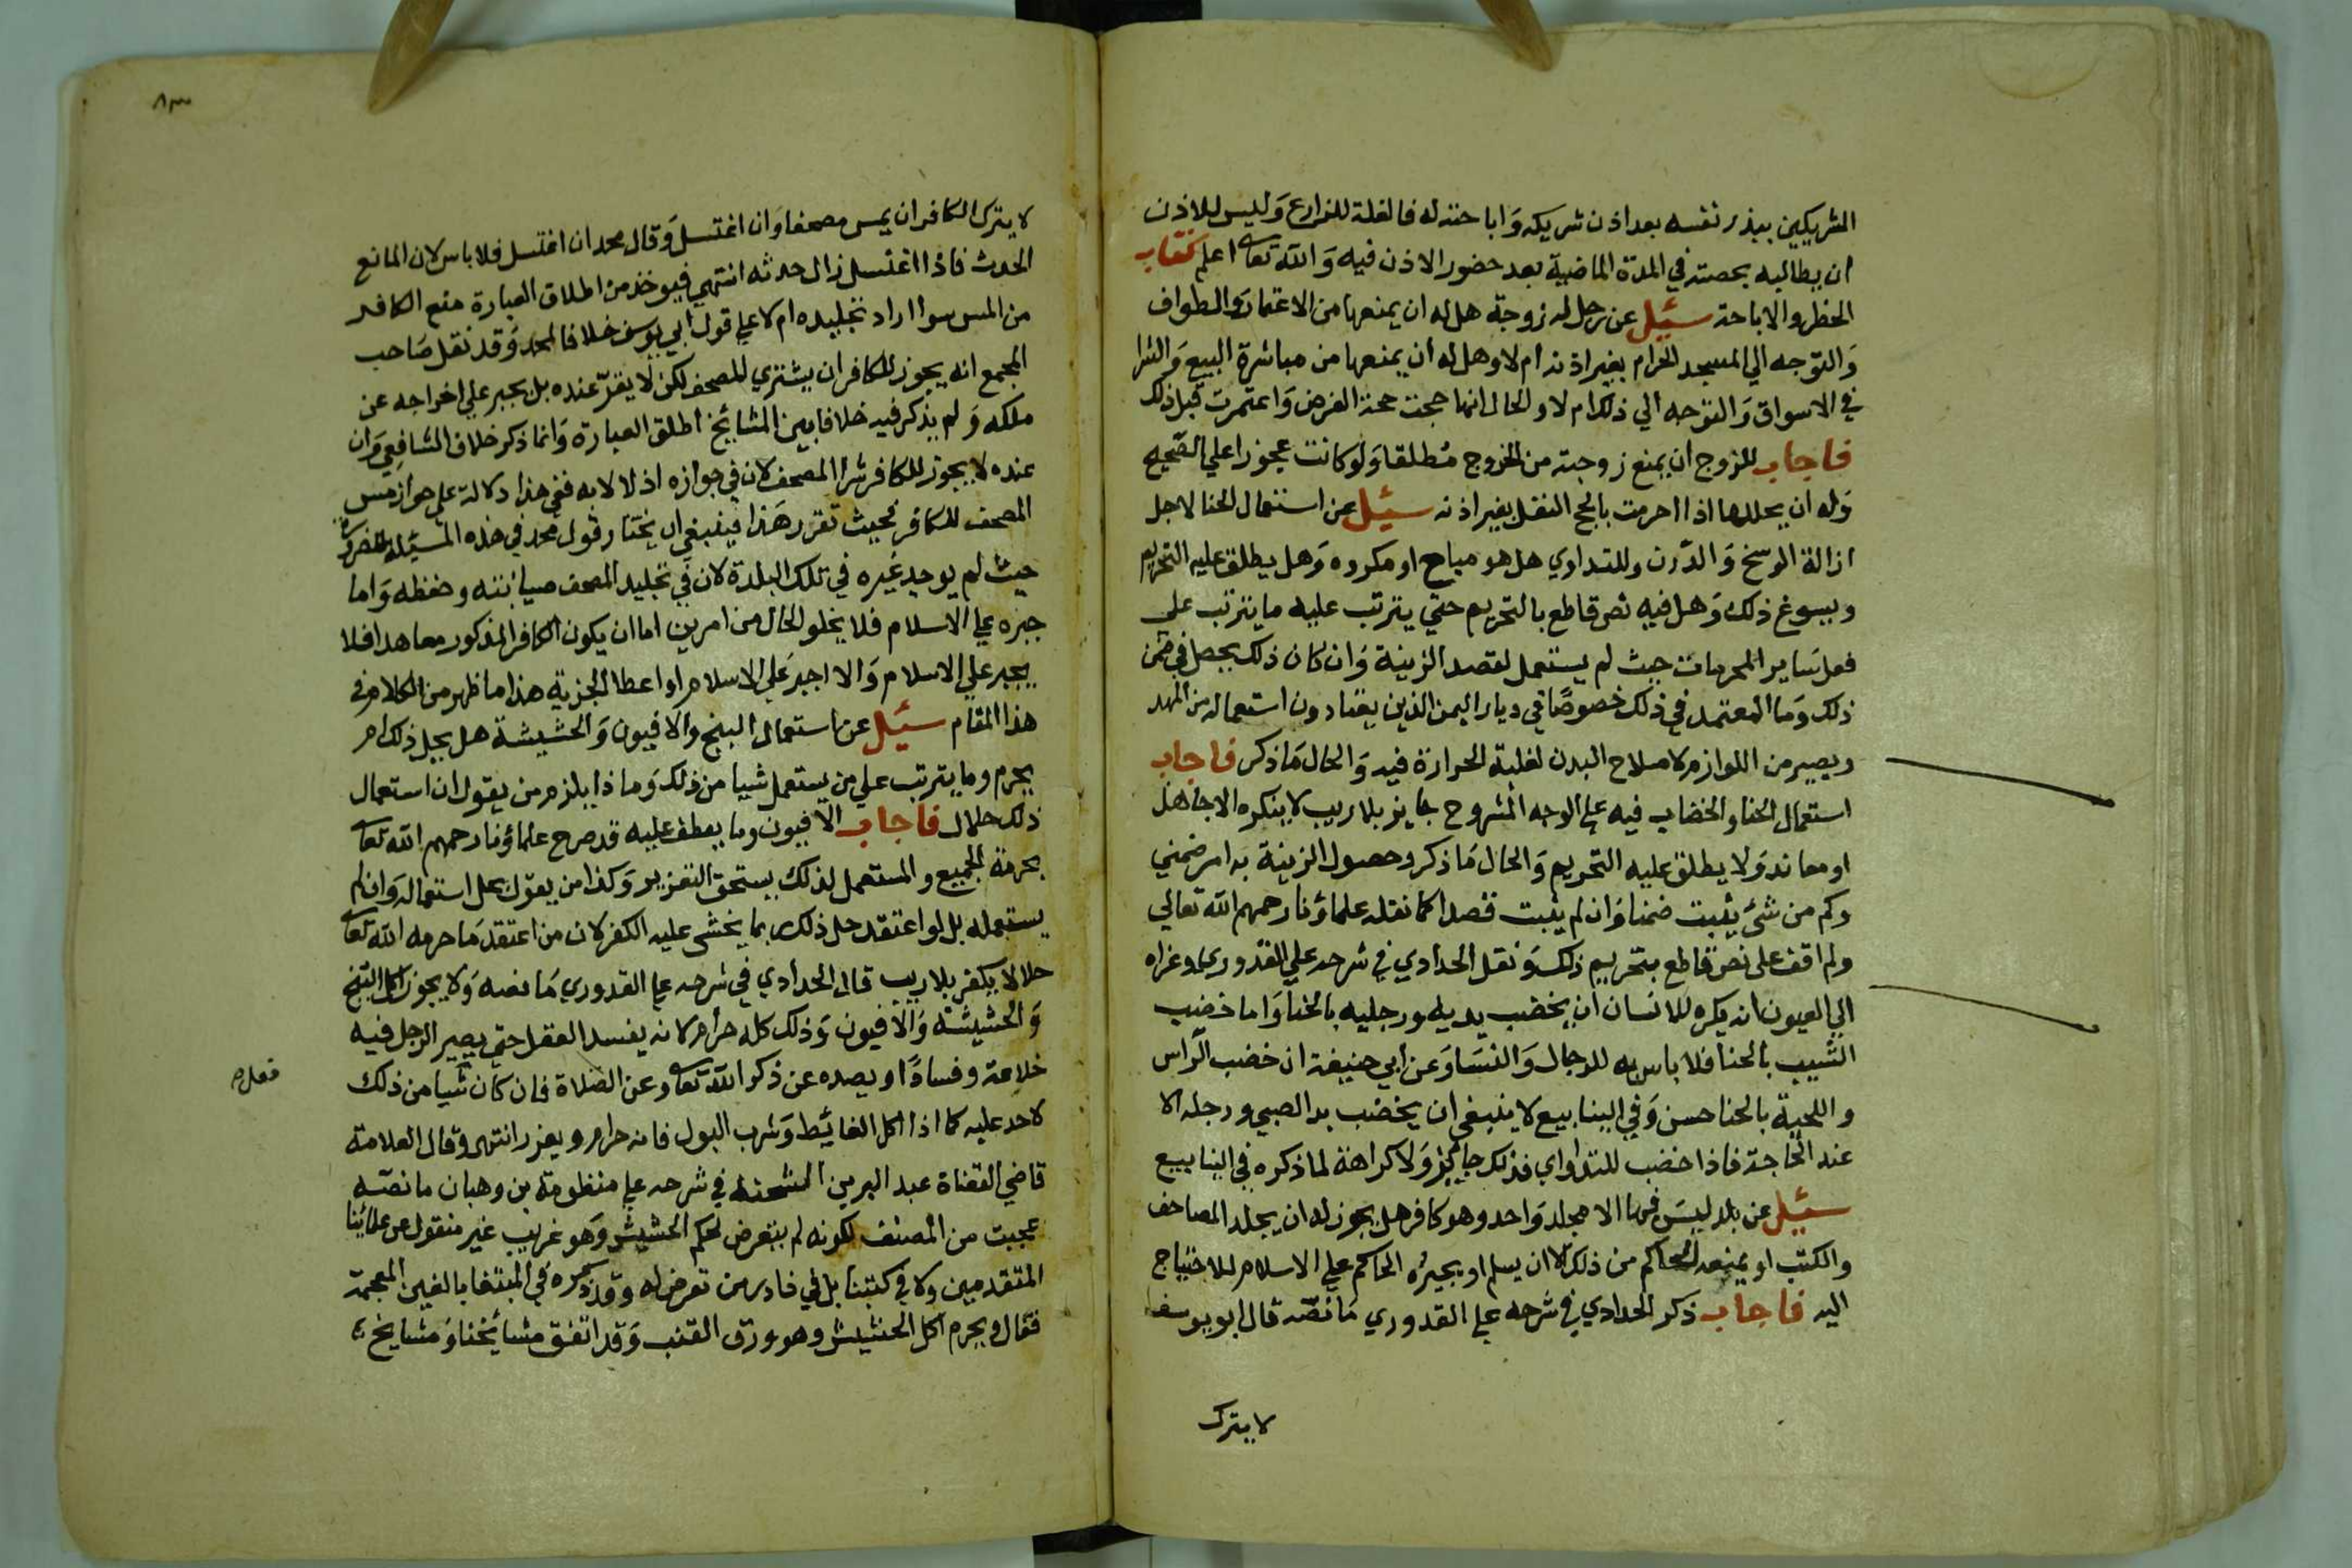 الشريكين ببذر نفسه بعد اذن شريكه وَاباحته له فالغلة للزارع وَليس للاذن
ان يطالبه بحصته في المدة الماضية بعد حضور الاذن فيه وَالله تعا اعلم كتاب
الحظر والاباحة سئيل عن رجل له زوجة هل له ان يمنعها من الاعتمار والطواف
وَالتوجه الي المسجد الحرام بغير اذنه ام لا وهل له ان يمنعها من مباشرة البيع وَالشرا
في الاسواق وَالتوجه الي ذلك ام لا والحال انها حجت حجة الفرض وَاعتمرت قبل ذلك
فاجاب للزوج ان يمنع زوجته من الخروج مُطلقا وَلو كانت عجوزا علي الصحيح
وَله ان يحللها اذا احرمت بالحج النفل بغير اذنه سئيل عن استعمال الحنا لاجل
ازالة الوسخ وَالدَّرن وللتداوي هل هو مباح او مكروه وَهل يطلق عليه التحريم
ويسوغ ذلك وَهل فيه نص قاطع بالتحريم حتي يترتب عليه ما يترتب على
فعل ساير المحرمات حيث لم يستعمل لقصد الزينة وَان كان ذلك يحصل في ضمن
ذلك وَما المعتمد في ذلك خصوصًا في ديار اليمن الذين يعتادون استعماله من المهد
ويصير من اللوازم لاصلاح البدن لغلبة الحرارة فيه وَالحال مَا ذكر فاجاب
استعمال الحنا والخضاب فيه علي الوجه المشروح جايز بلا ريب لا ينكره الا جاهل
او معاند وَلا يطلق عليه التحريم وَالحال مَا ذكر وحصول الزينة به امر ضمني
وكم من شئ يثبت ضمنا وَان لم يثبت قصدا كما نقله علماؤنا رحمهم الله تعالي
ولم اقف على نص قاطع بتحريم ذلك وَنقل الحدادي في شرحه علي القدوري وعزاه
الي العيون انه يكره للانسان ان يخضب يديه ورجليه بالحنا وَاما خضب
الشيب بالحنا فلا باس به للرجال وَالنسَا وَعن ابي حنيفة ان خضب الرَّاس
واللحية بالحنا حسن وَفي الينابيع لا ينبغي ان يخضب يد الصبي ورجله الا
عند الحاجة فاذا خضب للتداوي فذلك جايز وَلا كراهة لما ذكره في الينابيع
سئيل عن بلد ليسَ فيها الا مجلد وَاحد وهو كافر هل يجوز له ان يجلد المصاحف
والكتب او يمنعه الحاكم من ذلك الا ان يسلم او يجبره الحاكم علي الاسلام للاحتياج
اليه فاجاب ذكر الحدادي في شرحه علي القدوري مَا نصّه قال ابو يوسف
لا يترك
٨٣
لا يترك الكافر ان يمس مصحفا وَان اغتسل وَقال محمد ان اغتسل فلا باس لان المانع
الحدث فاذا اغتسل زال حدثه انتهي فيوخذ من اطلاق العبارة منع الكافر
من المس سوا اراد تجليده ام لا علي قول ابي يوسف خلافا لمحمد وَقد نقل صَاحب
المجمع انه يجوز للكافر ان يشتري المصحف لكن لا يقرّ عنده بل يجبر علي اخراجه عن
ملكه وَلم يذكر فيه خلافا بين المشائخ اطلق العبارة وَانما ذكر خلاف الشافعي وَان
عنده لا يجوز للكافر شرا المصحف لان في جوازه اذلالا به ففي هذا دلالة على جواز مس
المصحف للكافر فحيث تقرر هَذا فينبغي ان يختار قول محمد في هذه المسيئلة للضرورة
حيث لم يوجد غيره في تلك البلدة لان في تجليد المصحف صيانته وحفظه وَاما
جبره علي الاسلام فلا يخلو الحال من امرين اما ان يكون الكافر المذكور معاهدا فلا
يجبر علي الاسلام وَالا اجبر عَلي الاسلام او اعطا الجزية هذا ما ظهر من الكلام في
هذا المقام سئيل عن استعمال البنج والافيون وَالحشيشة هل يحل ذلك ام
يحرم وما يترتب علي من يستعمل شيا من ذلك وَما ذا يلزم من يقول ان استعمال
ذلك حلال فاجاب الافيون وما يعطف عليه قد صرح علماؤنا رحمهم الله تعا
بحرمة الجميع والمستعمل لذلك يستحق التعزير وَكذا من يقول بحل استعماله وَان لم
يستعمله بل لو اعتقد حل ذلك ربما يخشى عليه الكفر لان من اعتقد مَا حرمه الله تعا
حلالا يكفر بلا ريب قال الحدادي في شرحه علي القدوري مَا نصه وَلا يجوز اكل البنج
وَالحشيشة وَالافيون وَذلك كله حرام لانه يفسد العقل حتي يصير الرجل فيه
خلاعة وفسادًا ويصده عن ذكر الله تعا وعن الصلاة فان كان شيا من ذلك
لا حد عليه كما اذا اكل الغائيط وَشرب البول فانه حرام ويعزر انتهي وقال العلامة
قاضي القضاة عبد البر بن الشحنة في شرحه علي منظومة بن وهبان ما نصّه
عجبت من المصنف لكونه لم يتعرض لحكم الحشيش وَهو غريب غير منقول عن علمائنا
المتقدمين ولا في كتبنا بل في نادر من تعرض له وَقد ذكره في المبتغا بالغين المعجمة
فقال ويحرم اكل الحشيش وهو ورق القنب وَقد اتفق مشائخنا وَمشايخ
فعله